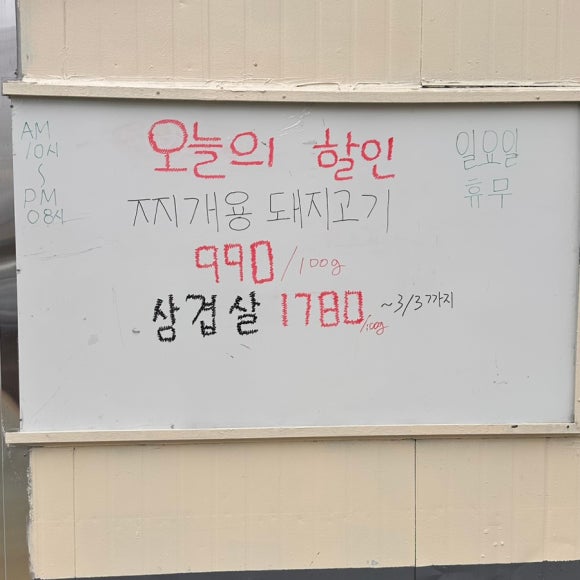 AM
10시
~
PM
08시
오늘의 할인
일요일
휴무
찌개용 돼지고기
990/100g
삼겹살 1780/100g ~3/3까지